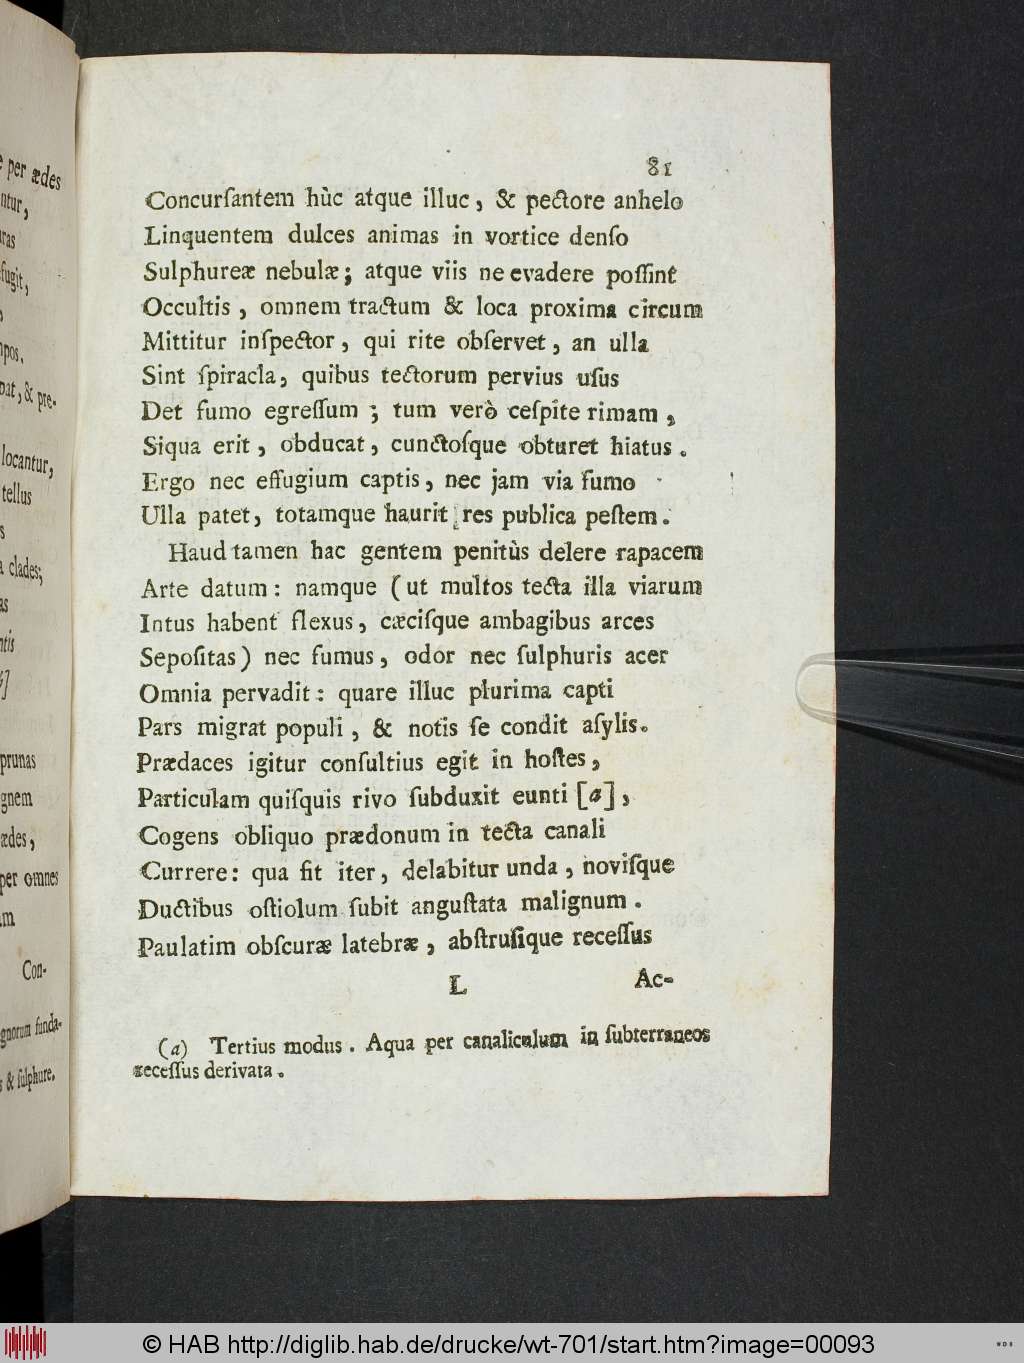 e per ædes
ntur,
ras
fugit,
npos.
bat, & pre-
locantur,
tellus
s
a clades;
as
ntis
prunas
gnem
ædes,
per omnes
m
Con-
gnorum funda-
s & ſulphure.
81
Concurſantem hùc atque illuc, & pectore anhelo
Linquentem dulces animas in vortice denſo
Sulphureæ nebulæ; atque viis ne evadere poſſint
Occultis, omnem tractum & loca proxima circum
Mittitur inſpector, qui rite obſervet, an ulla
Sint ſpiracla, quibus tectorum pervius uſus
Det fumo egreſſum; tum verò ceſpite rimam,
Siqua erit, obducat, cunctoſque obturet hiatus.
Ergo nec effugium captis, nec jam via fumo
Ulla patet, totamque haurit res publica peſtem.
Haud tamen hac gentem penitùs delere rapacem
Arte datum: namque (ut multos tecta illa viarum
Intus habent flexus, cæciſque ambagibus arces
Sepoſitas) nec fumus, odor nec ſulphuris acer
Omnia pervadit: quare illuc plurima capti
Pars migrat populi, & notis ſe condit aſylis.
Prædaces igitur conſultius egit in hoſtes,
Particulam quiſquis rivo ſubduxit eunti [a],
Cogens obliquo prædonum in tecta canali
Currere: qua fit iter, delabitur unda, noviſque
Ductibus oſtiolum ſubit anguſtata malignum.
Paulatim obſcuræ latebræ, abſtruſique receſſus
L Ac-
(a) Tertius modus. Aqua per canaliculum in ſubterraneos
receſſus derivata.
© HAB http://diglib.hab.de/drucke/wt-701/start.htm?image=00093